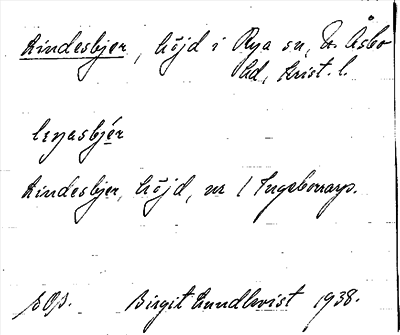 Lindesbjer, höjd i Rya sn, N. Åsbo
hd, Krist. l.
Lindesbjer, höjd, nr 1 Ingeborrarp.
Birgit Lundkvist 1938.